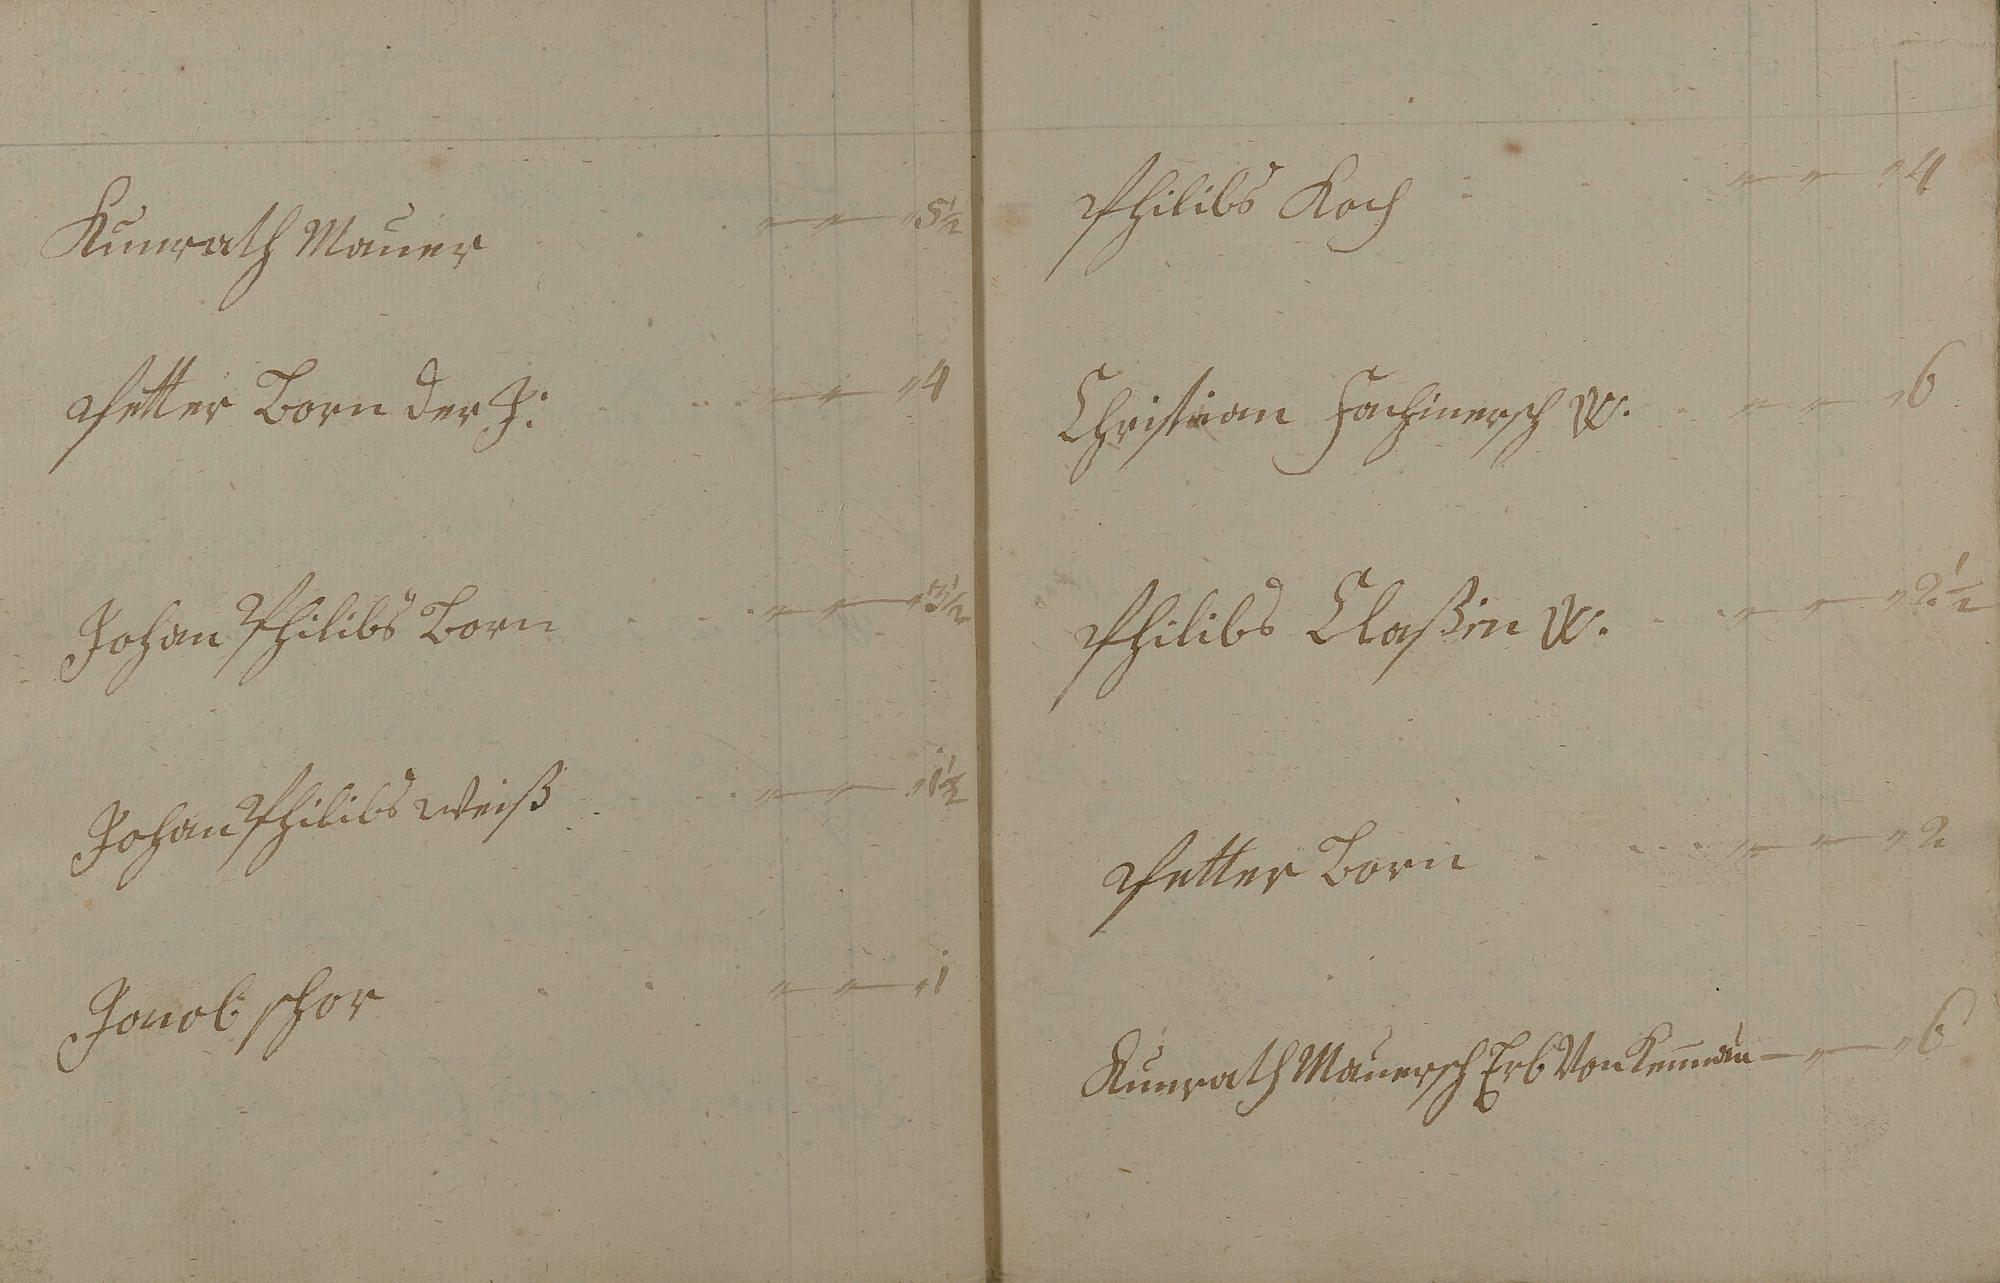 Kunrath Mauer . . . " — " — " 5½
Petter Born der J: . . . " — " — " 4
Johan Philibs Born . . . " — " — " 3½
Johan Philibs Weiß . . . " — " — " 1½
Jacob schor . . . " — " — " 1
Philibs Koch . . . " — " — " 4
Christian W. . " — " — " 6
Philibs Claßen W. . . " — " — " 2½
Petter Born . . . . " — " — " 2
Kunrath Mauersch Erb Von — " — " 6